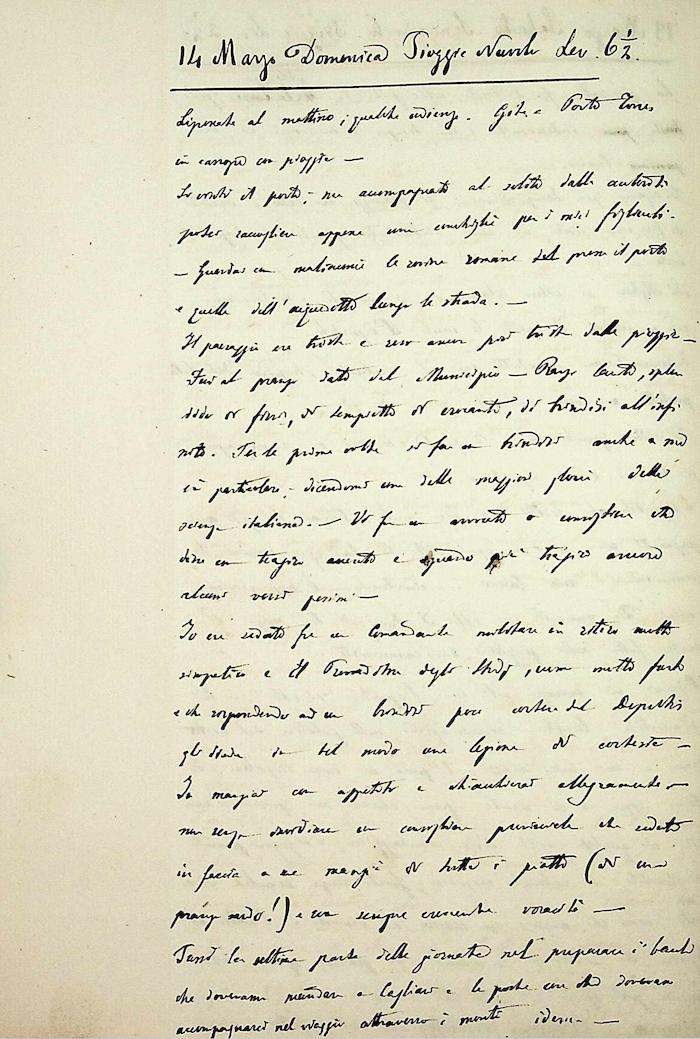 14 Marzo Domenica Pioggia Nuvole Lev. 6½.
al mattino; qualche udienza. Gita a Porto Torres
in carrozza con pioggia —
Io visitai il porto; ma accompagnato al solito dalle autorità
potei raccogliere appena una conchiglia per i miei figliuoli.
— Guardai con malinconia le rovine romane del presso il porto
e quelle dell'acquedotto lungo la strada. —
Il paesaggio era triste e reso ancor più triste dalla pioggia —
Fui al pranzo dato dal Municipio — Pranzo lauto, splen
dido di fiori, di tempietti di croccante, di brindisi all'infi
nito. Per la prima volta si fa un brindisi anche a me
in particolare, dicendomi una delle maggiori glorie della
scienza italiana. — Vi fu un avvocato o consigliere che
disse con tragico accento e sguardo più tragico ancora
alcuni versi pessimi —
Io era seduto fra un Comandante militare in ritiro molto
simpatico e il Provveditore degli Studj, uomo molto
e che rispondendo ad un brindisi poco cortese del Deputato
gli diede in tal modo una lezione di cortesia —
Io mangiai con appetito e chiacchierai allegramente —
non senza invidiare un consigliere provinciale che seduto
in faccia a me mangiò di tutti i piatti (di un
pranzo sardo!) e con sempre crescente voracità —
Passai la ultima parte della giornata nel preparare i bauli
che dovevamo mandare a Cagliari e le poche cose che dovevano
accompagnarci nel viaggio attraverso i monti —